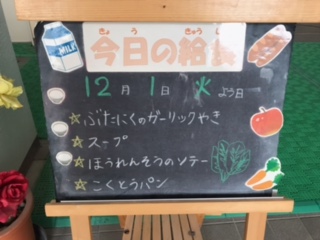 MILK
きょう きゅうしょく
今日の給食
12月1日火よう日
☆ぶたにくのガーリックやき
☆スープ
☆ほうれんそうのソテー
☆こくとうパン